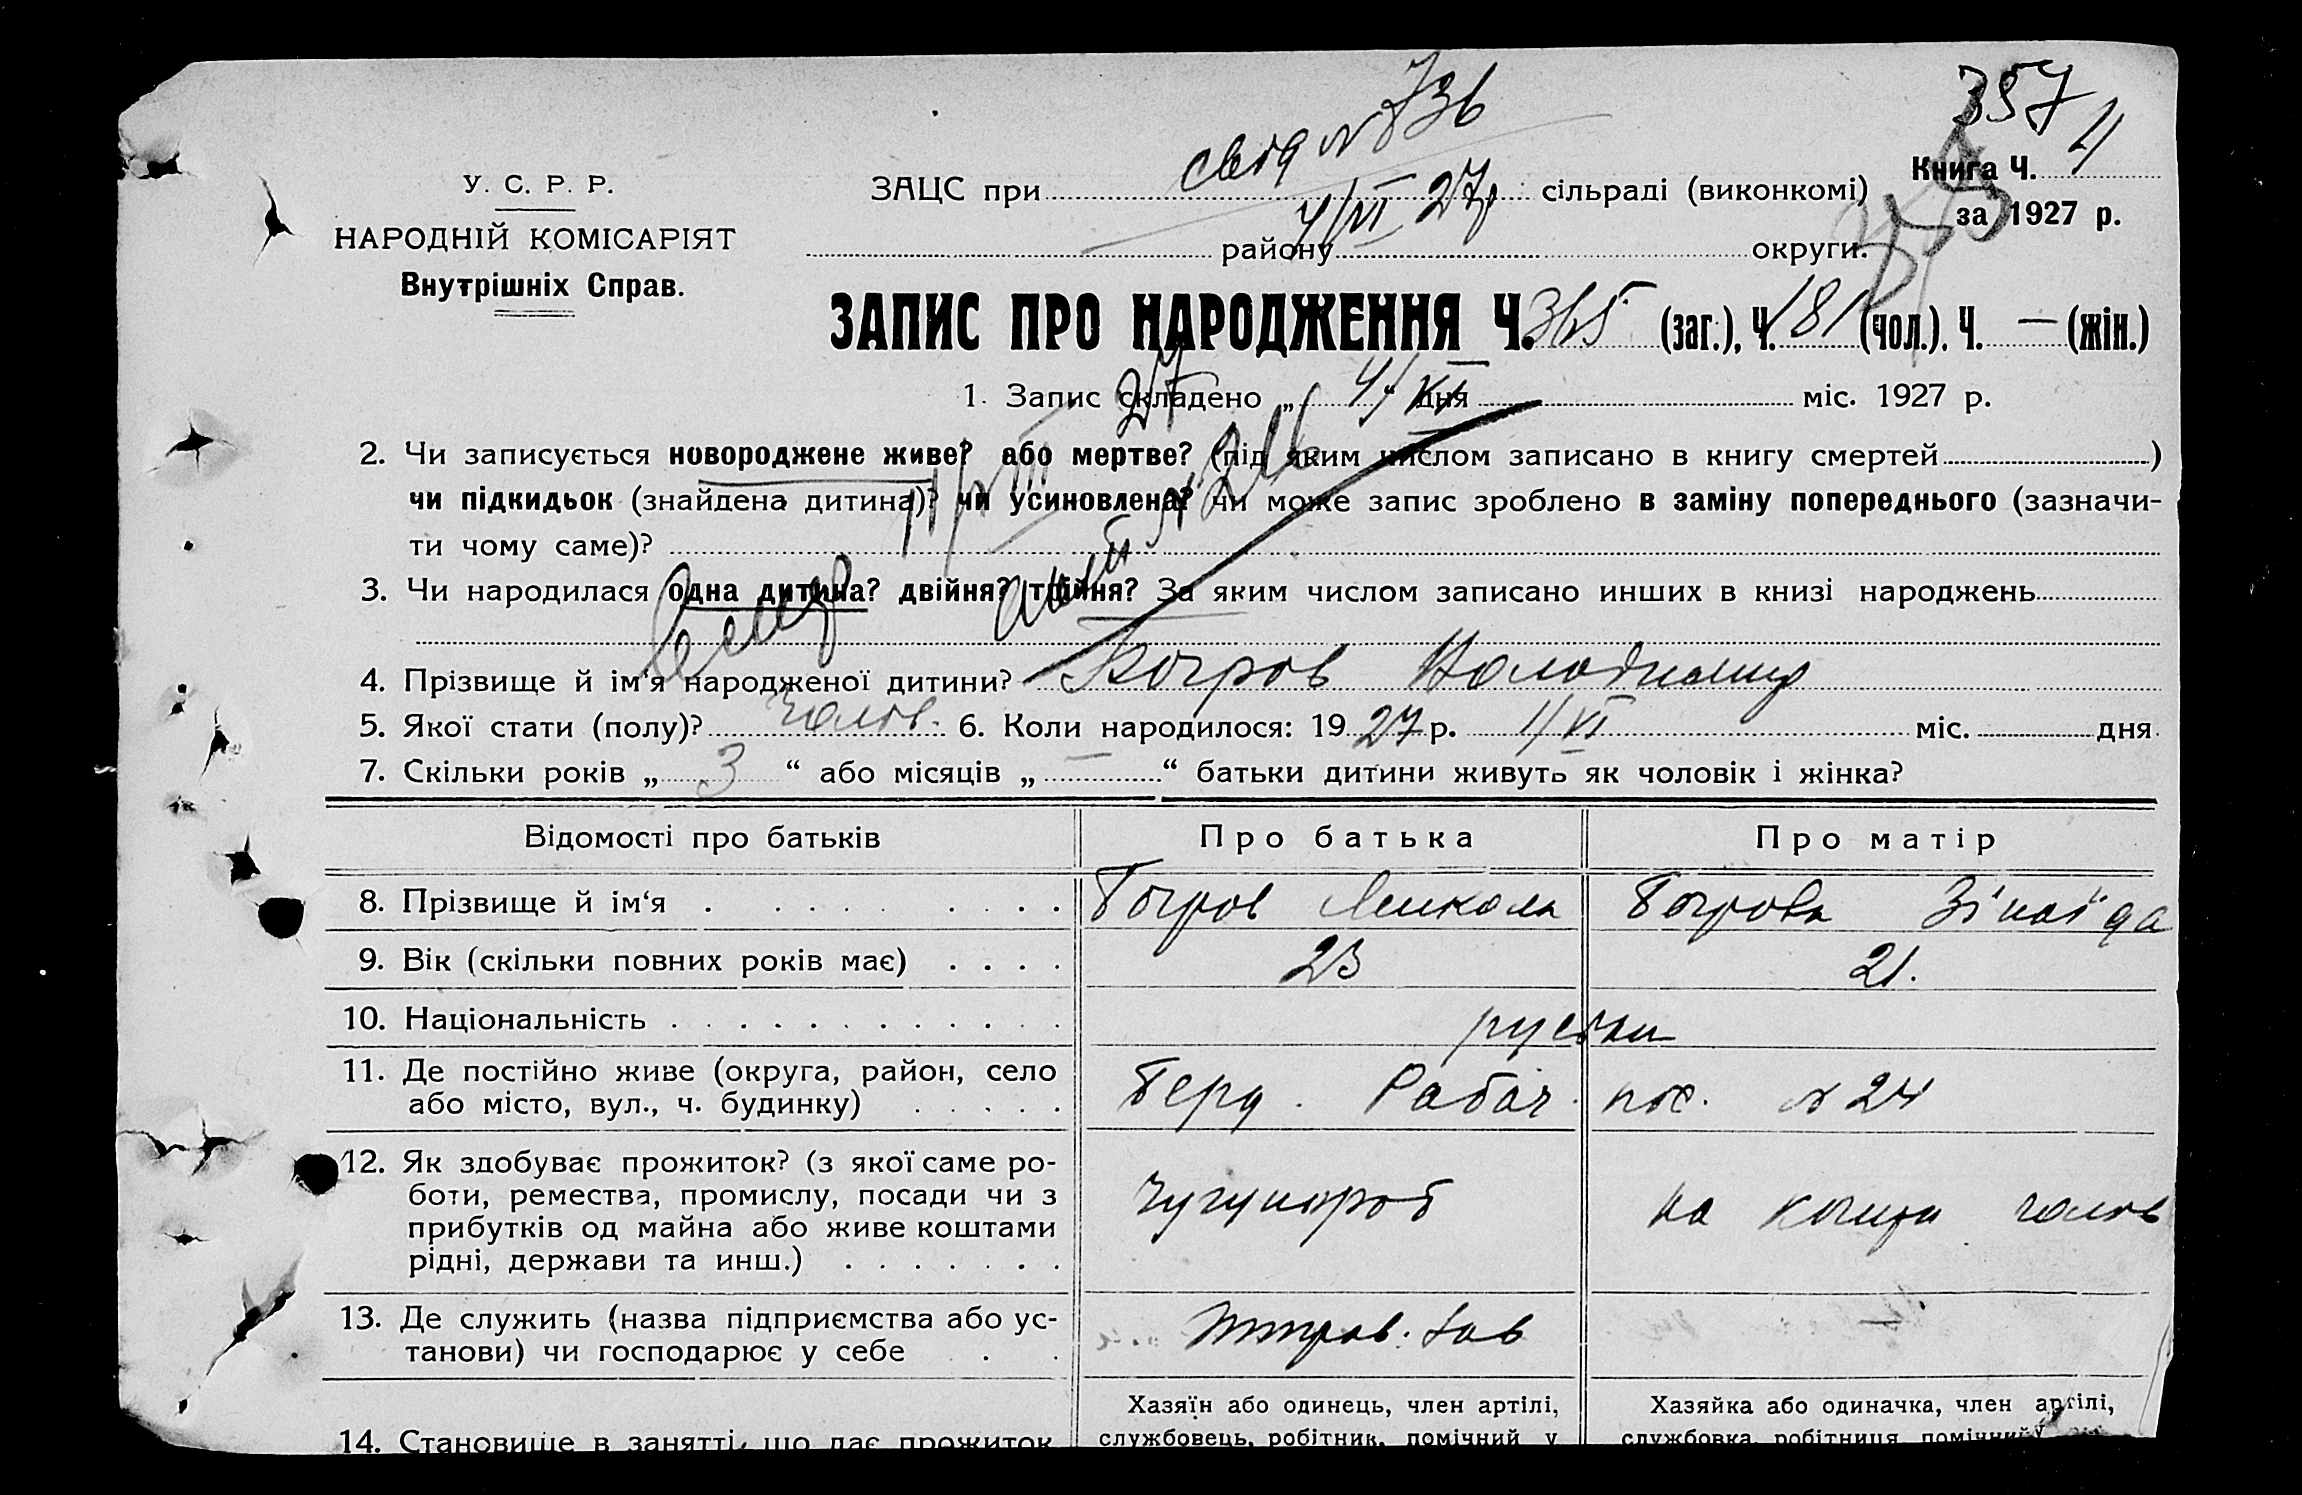 357
свід N 736
У. С. Р. Р.
ЗАЦС при сільраді (виконкомі)
Книга Ч. 4
4/VI 27р
за 1927 р.
НАРОДНІЙ КОМІСАРІЯТ
району округи.
Внутрішніх Справ.
ЗАПИС ПРО НАРОДЖЕННЯ Ч. 365 (заг.), Ч. 181 (чол.). Ч. — (жін.)
1. Запис складено „ 4/VI дня міс. 1927 р.
2. Чи записується новороджене живе? або мертве? (під яким числом записано в книгу смертей )
чи підкидьок (знайдена дитина)? чи усиновлена? чи може запис зроблено в заміну попереднього (зазначи-
ти чому саме)?
3. Чи народилася одна дитина? двійня? трійня? За яким числом записано инших в книзі народжень
4. Прізвище й ім'я народженої дитини? Володимир
5. Якої стати (полу)? чолов. 6. Коли народилося: 19 27 р. 1/VI міс. дня
7. Скільки років „ 3 “ або місяців „ — “ батьки дитини живуть як чоловік і жінка?
Відомості про батьків Про батька Про матір
8. Прізвище й ім‘я Микола Зінаїда
9. Вік (скільки повних років має) 23 21.
10. Національність руськи
11. Де постійно живе (округа, район, село Берд. Рабоч. пос. N 24
або місто, вул., ч. будинку)
12. Як здобуває прожиток? (з якої саме ро-
боти, ремества, промислу, посади чи з
прибутків од майна або живе коштами
рідні, держави та инш.)
на кошти чолов
13. Де служить (назва підприємства або ус-
танови) чи господарює у себе
—
Хазяїн або одинець, член артілі, Хазяйка або одиначка, член артілі,
14. Становище в занятті, що дає прожиток службовець, робітник, помічний у службовка, робітниця, помічний у